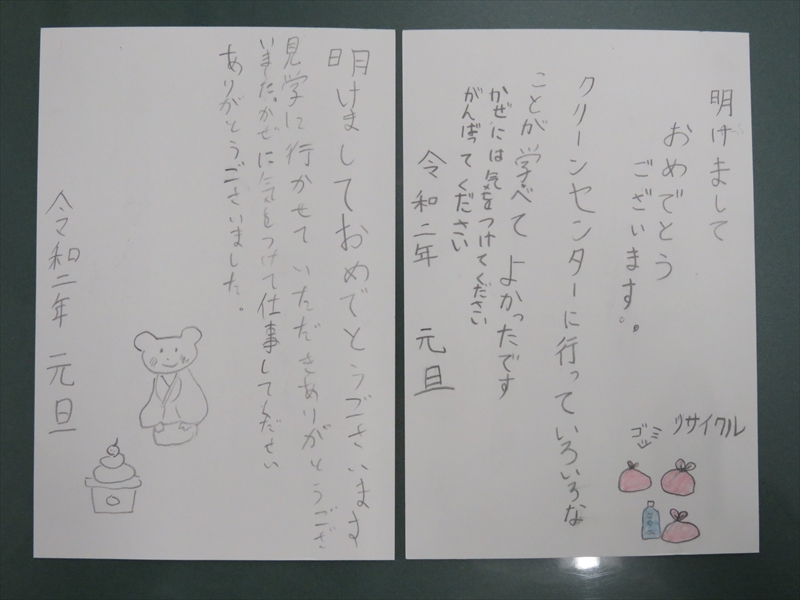 明けまして
おめでとう
ございます。
クリーンセンターに行っていろいろな
ことが学べてよかったです
かぜには気をつけてください
がんばってください
令和二年 元旦
リサイクル
ゴミ
明けましておめでとうございます
見学に行かせていただきありがとうござ
いました。かぜに気をつけて仕事してください
ありがとうございました。
令和二年 元旦